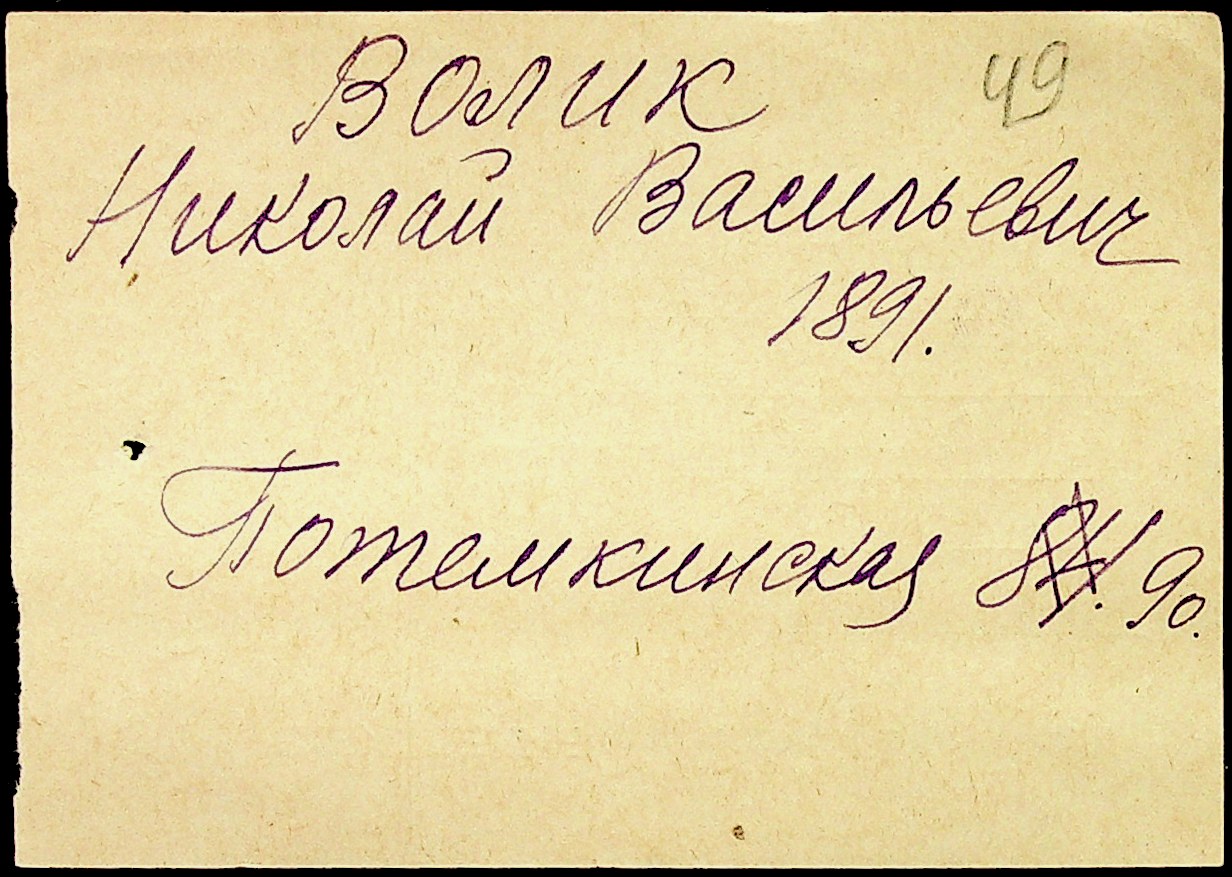 Волик 49
Николай Васильевич
1891.
Потемкинская 90.